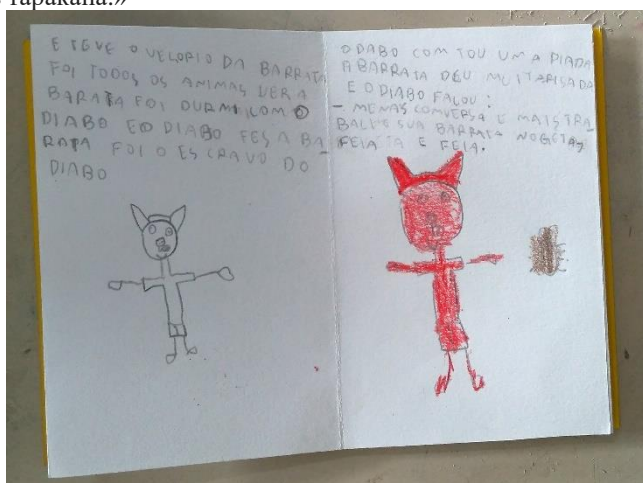 Tapakana.»
E TEVE O VELORIO DA BARRATA
FOI TODOS OS ANIMAS VER A
BARATA FOI DURMI COM O
DIABO E O DIABO FES A BA_
RATA FOI O ES CRAVO DO
DIABO
O DABO COM TOU UM A PIADA
A BARRATA DEU MUITA RISADA
E O DIABO FALOU:
- MENAS COMVERSA E MAIS TRA_
BALHO SUA BARRATA NOGETA,
FEIA TA E FEIA.